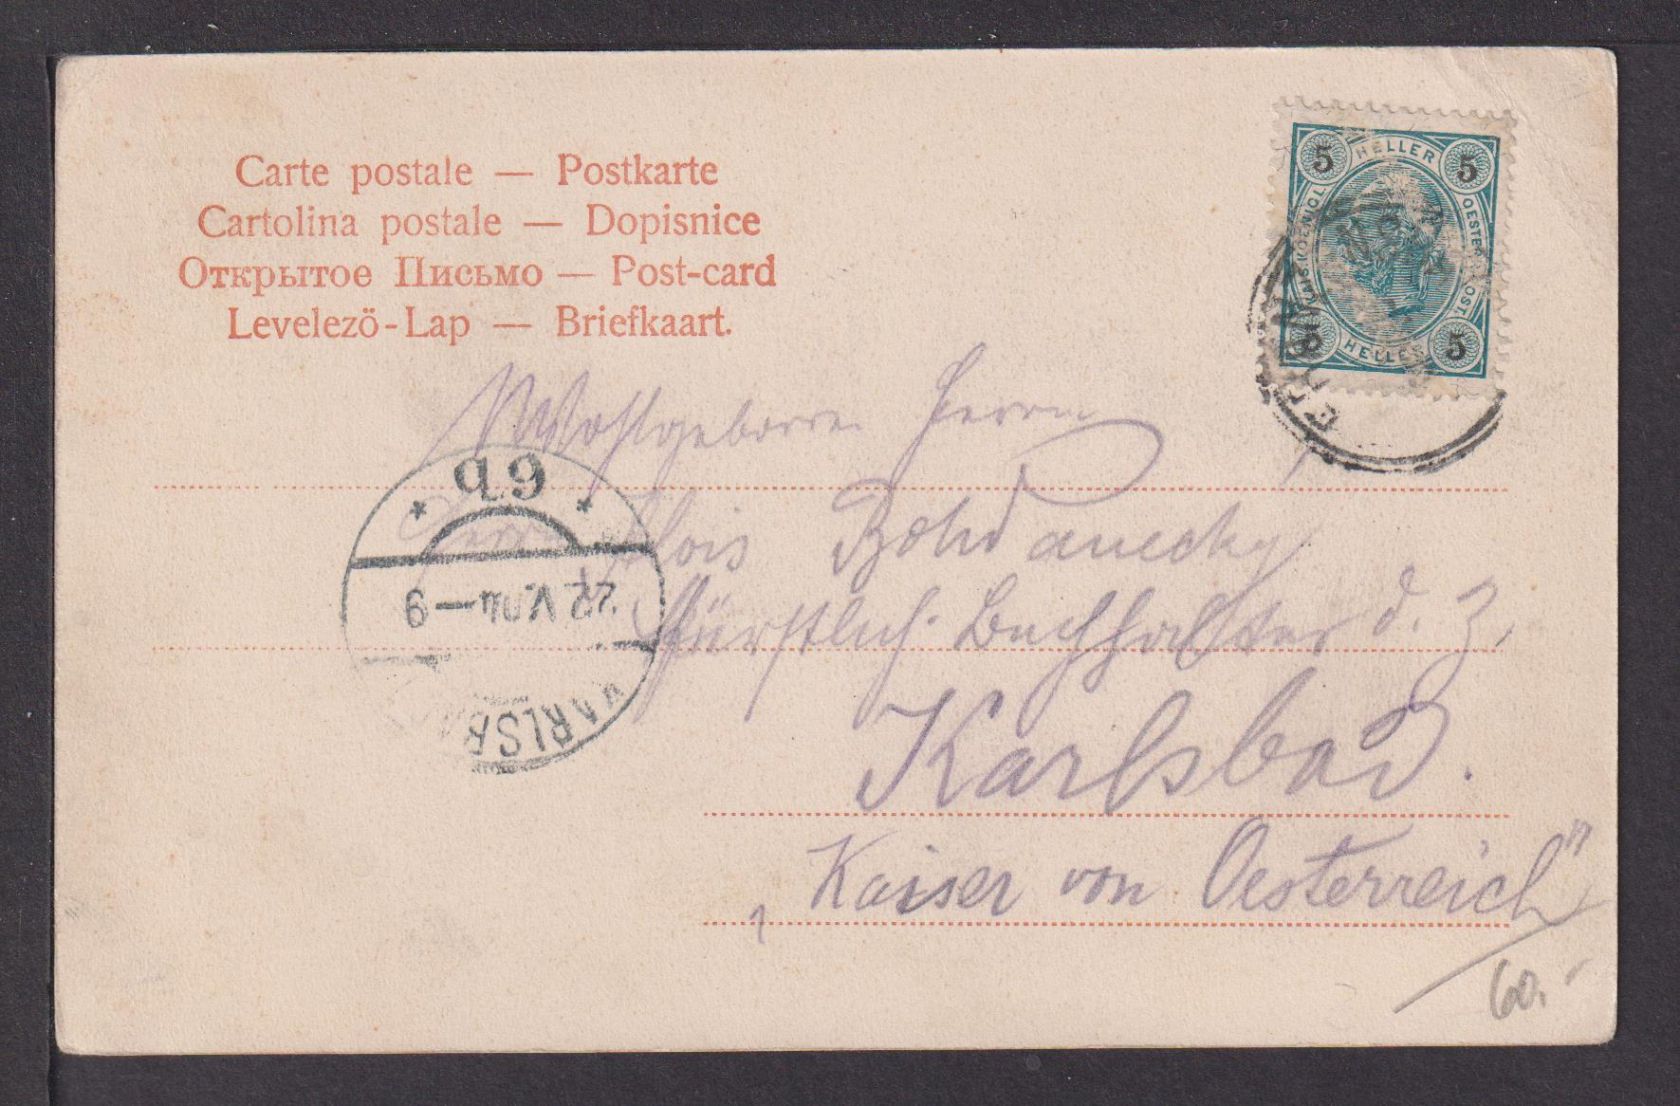 Carte postale — Postkarte
Cartolina postale — Dopisnice
Открытое Письмо — Post-card
Levelezö-Lap — Briefkaart.
5 HELLER 5
KAIS. KOENIGL. OESTERR. POST.
5 HELLER 5
Herrn
Herrn Alois Bohdanecky
fürstlich. Buchhalter d. Z.
Karlsbad.
„Kaiser von Oesterreich"
60.
KARLSB
22.V.04—9
* 6 b *